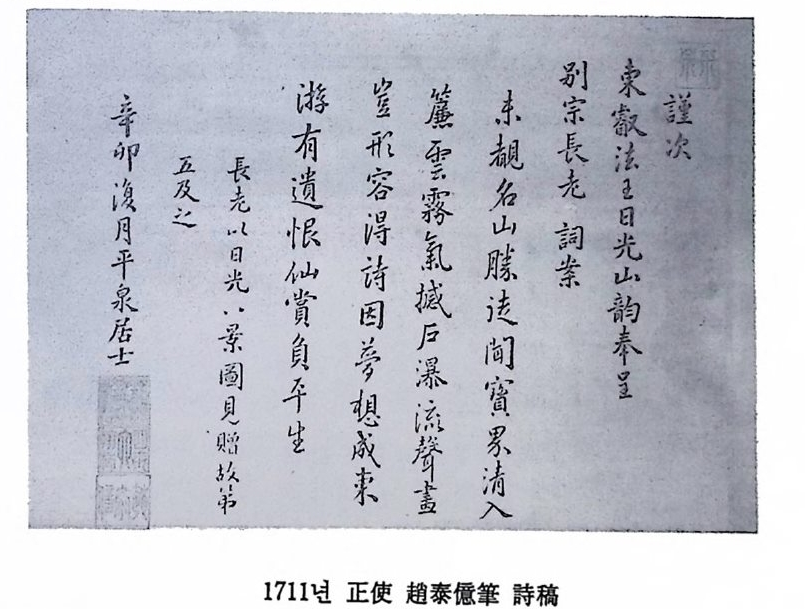 謹次
東叡法王日光山韵奉呈
別宗長老 詞案
未覩名山勝徒聞寶界清入
簾雲霧氣撼石瀑流聲畫
豈形容得詩因夢想成東
游有遺恨仙賞負平生
長老以日光八景圖見贈故第
五及之
辛卯復月平泉居士
1711년 正使 趙泰億筆 詩稿